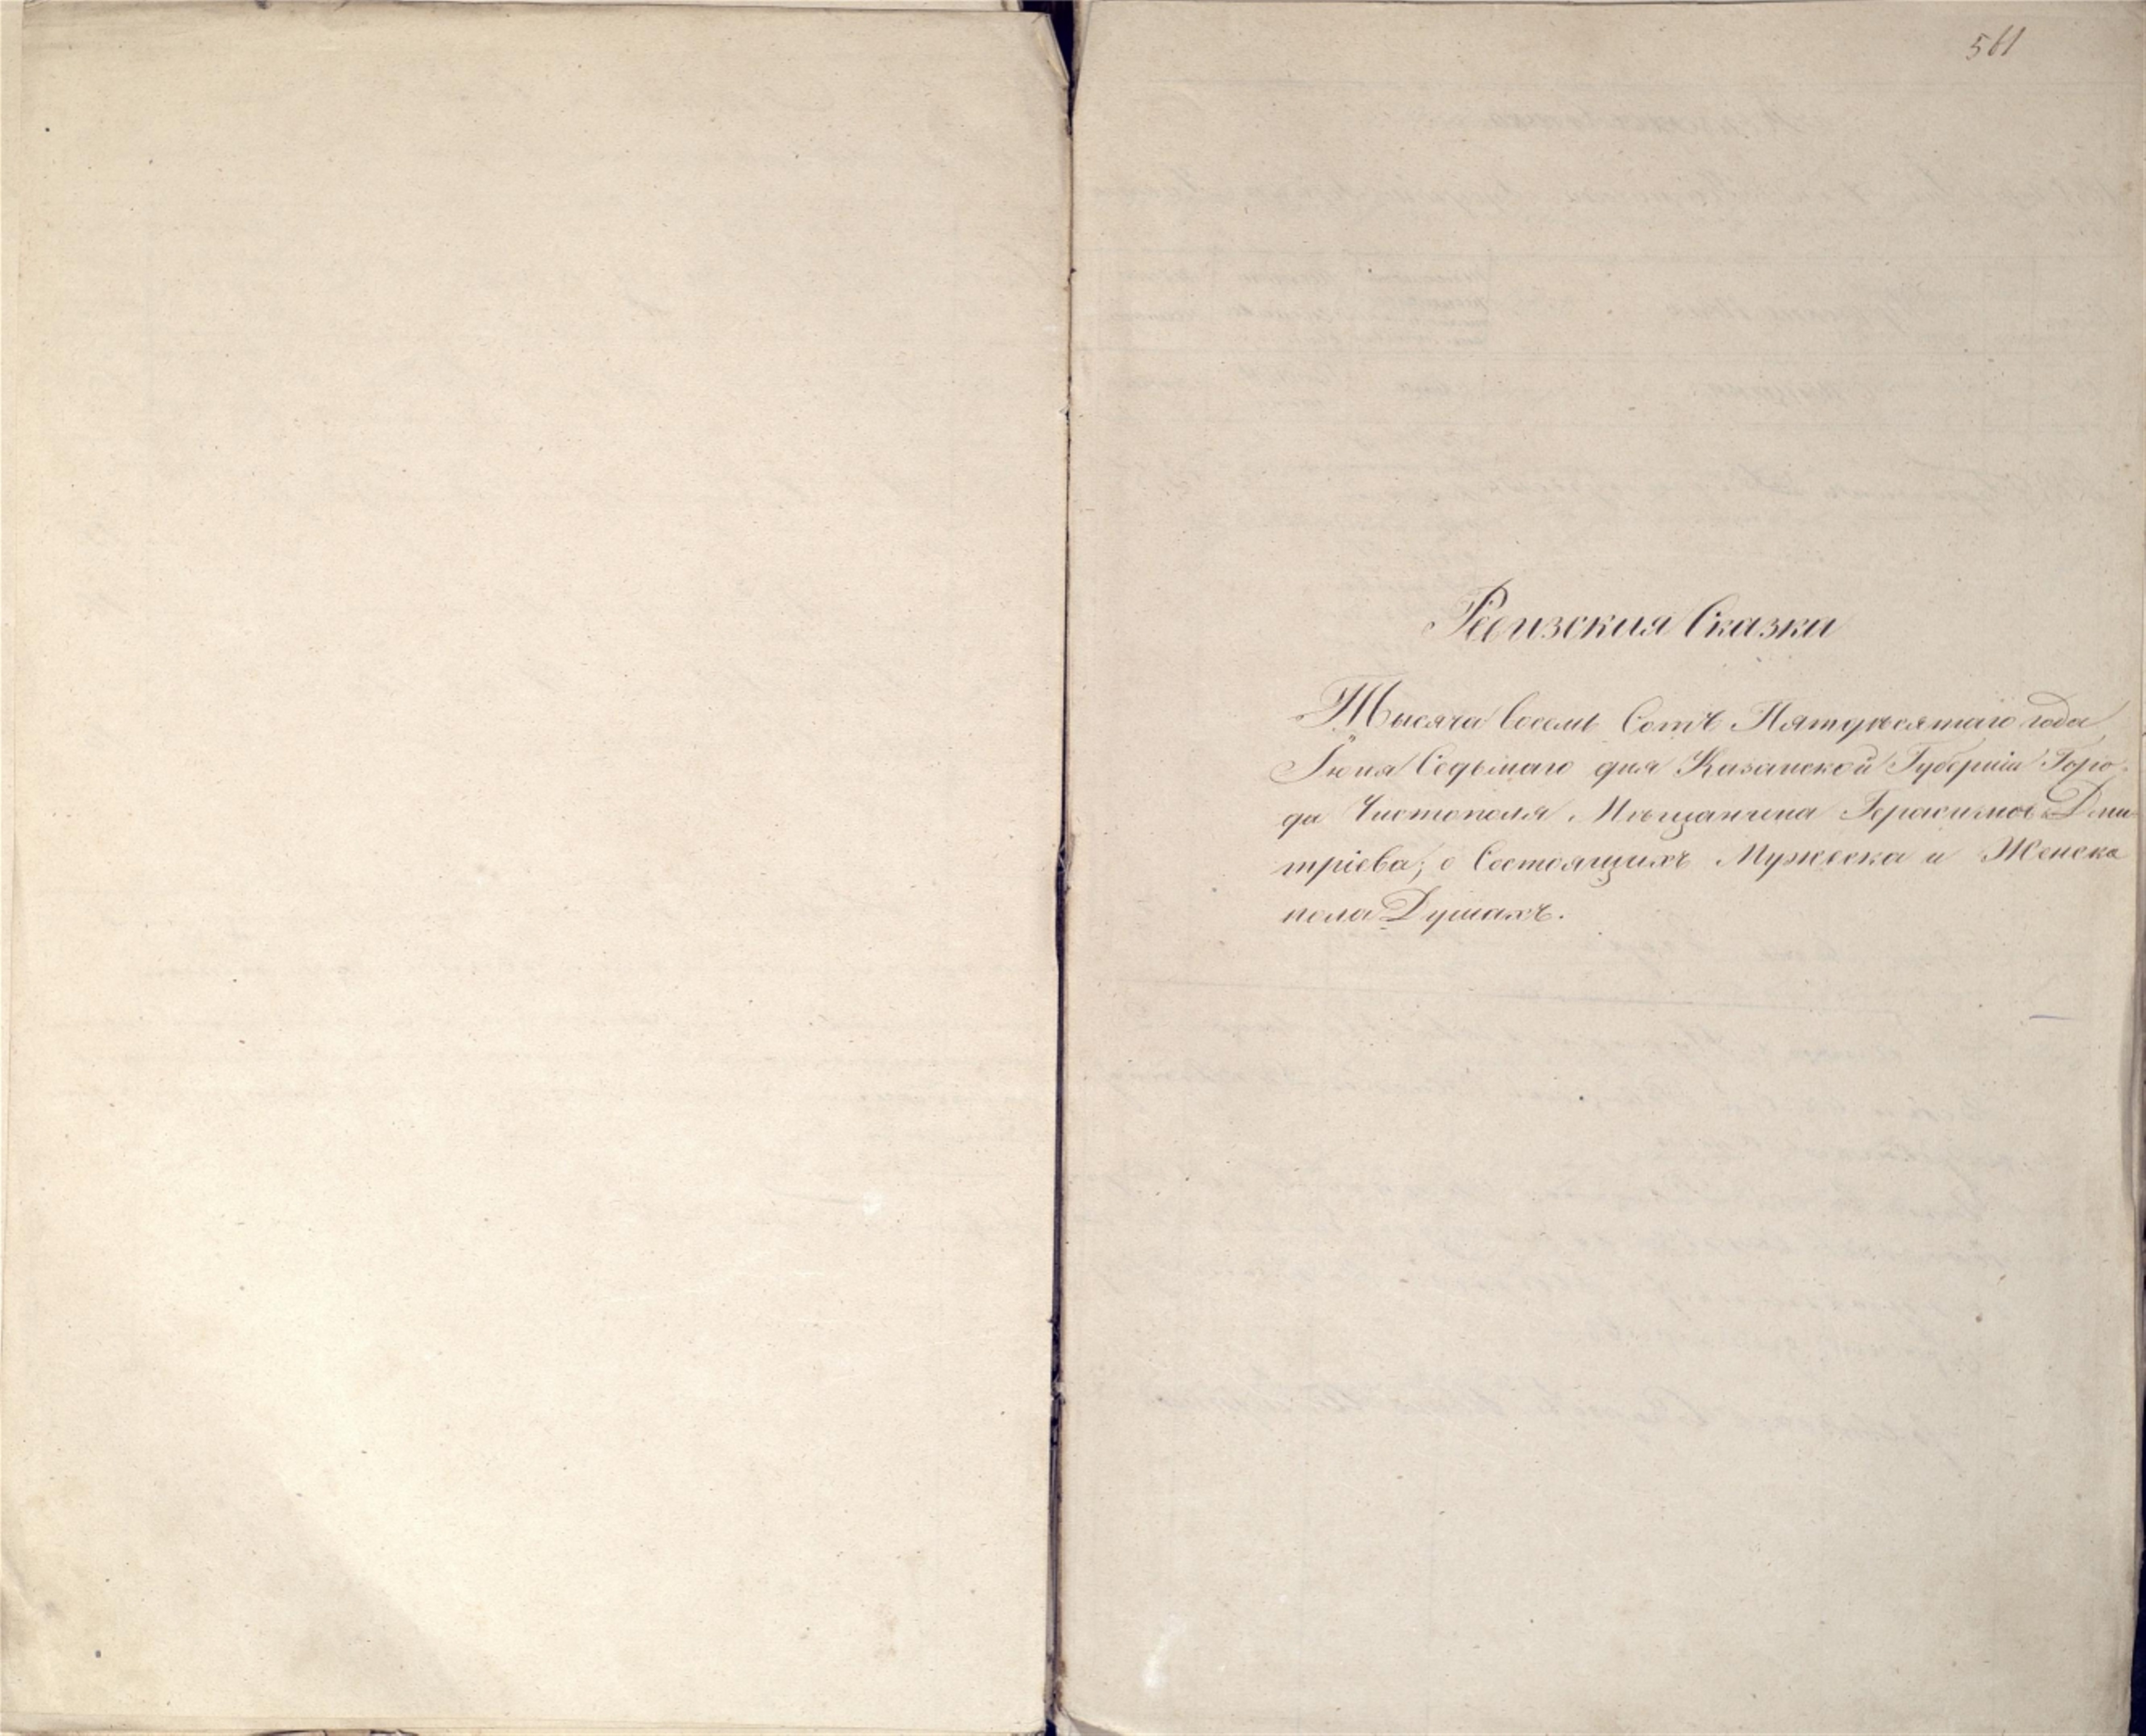 561
Ревизския Сказки
Тысяча восемь Сотъ Пятдесятаго года
Іюня Седьмаго дня Казанской Губерніи Горо-
да Чистополя Мѣщанина Герасимов Дми
тріева; о Состоящихъ Мужеска и Женска
пола Душахъ.